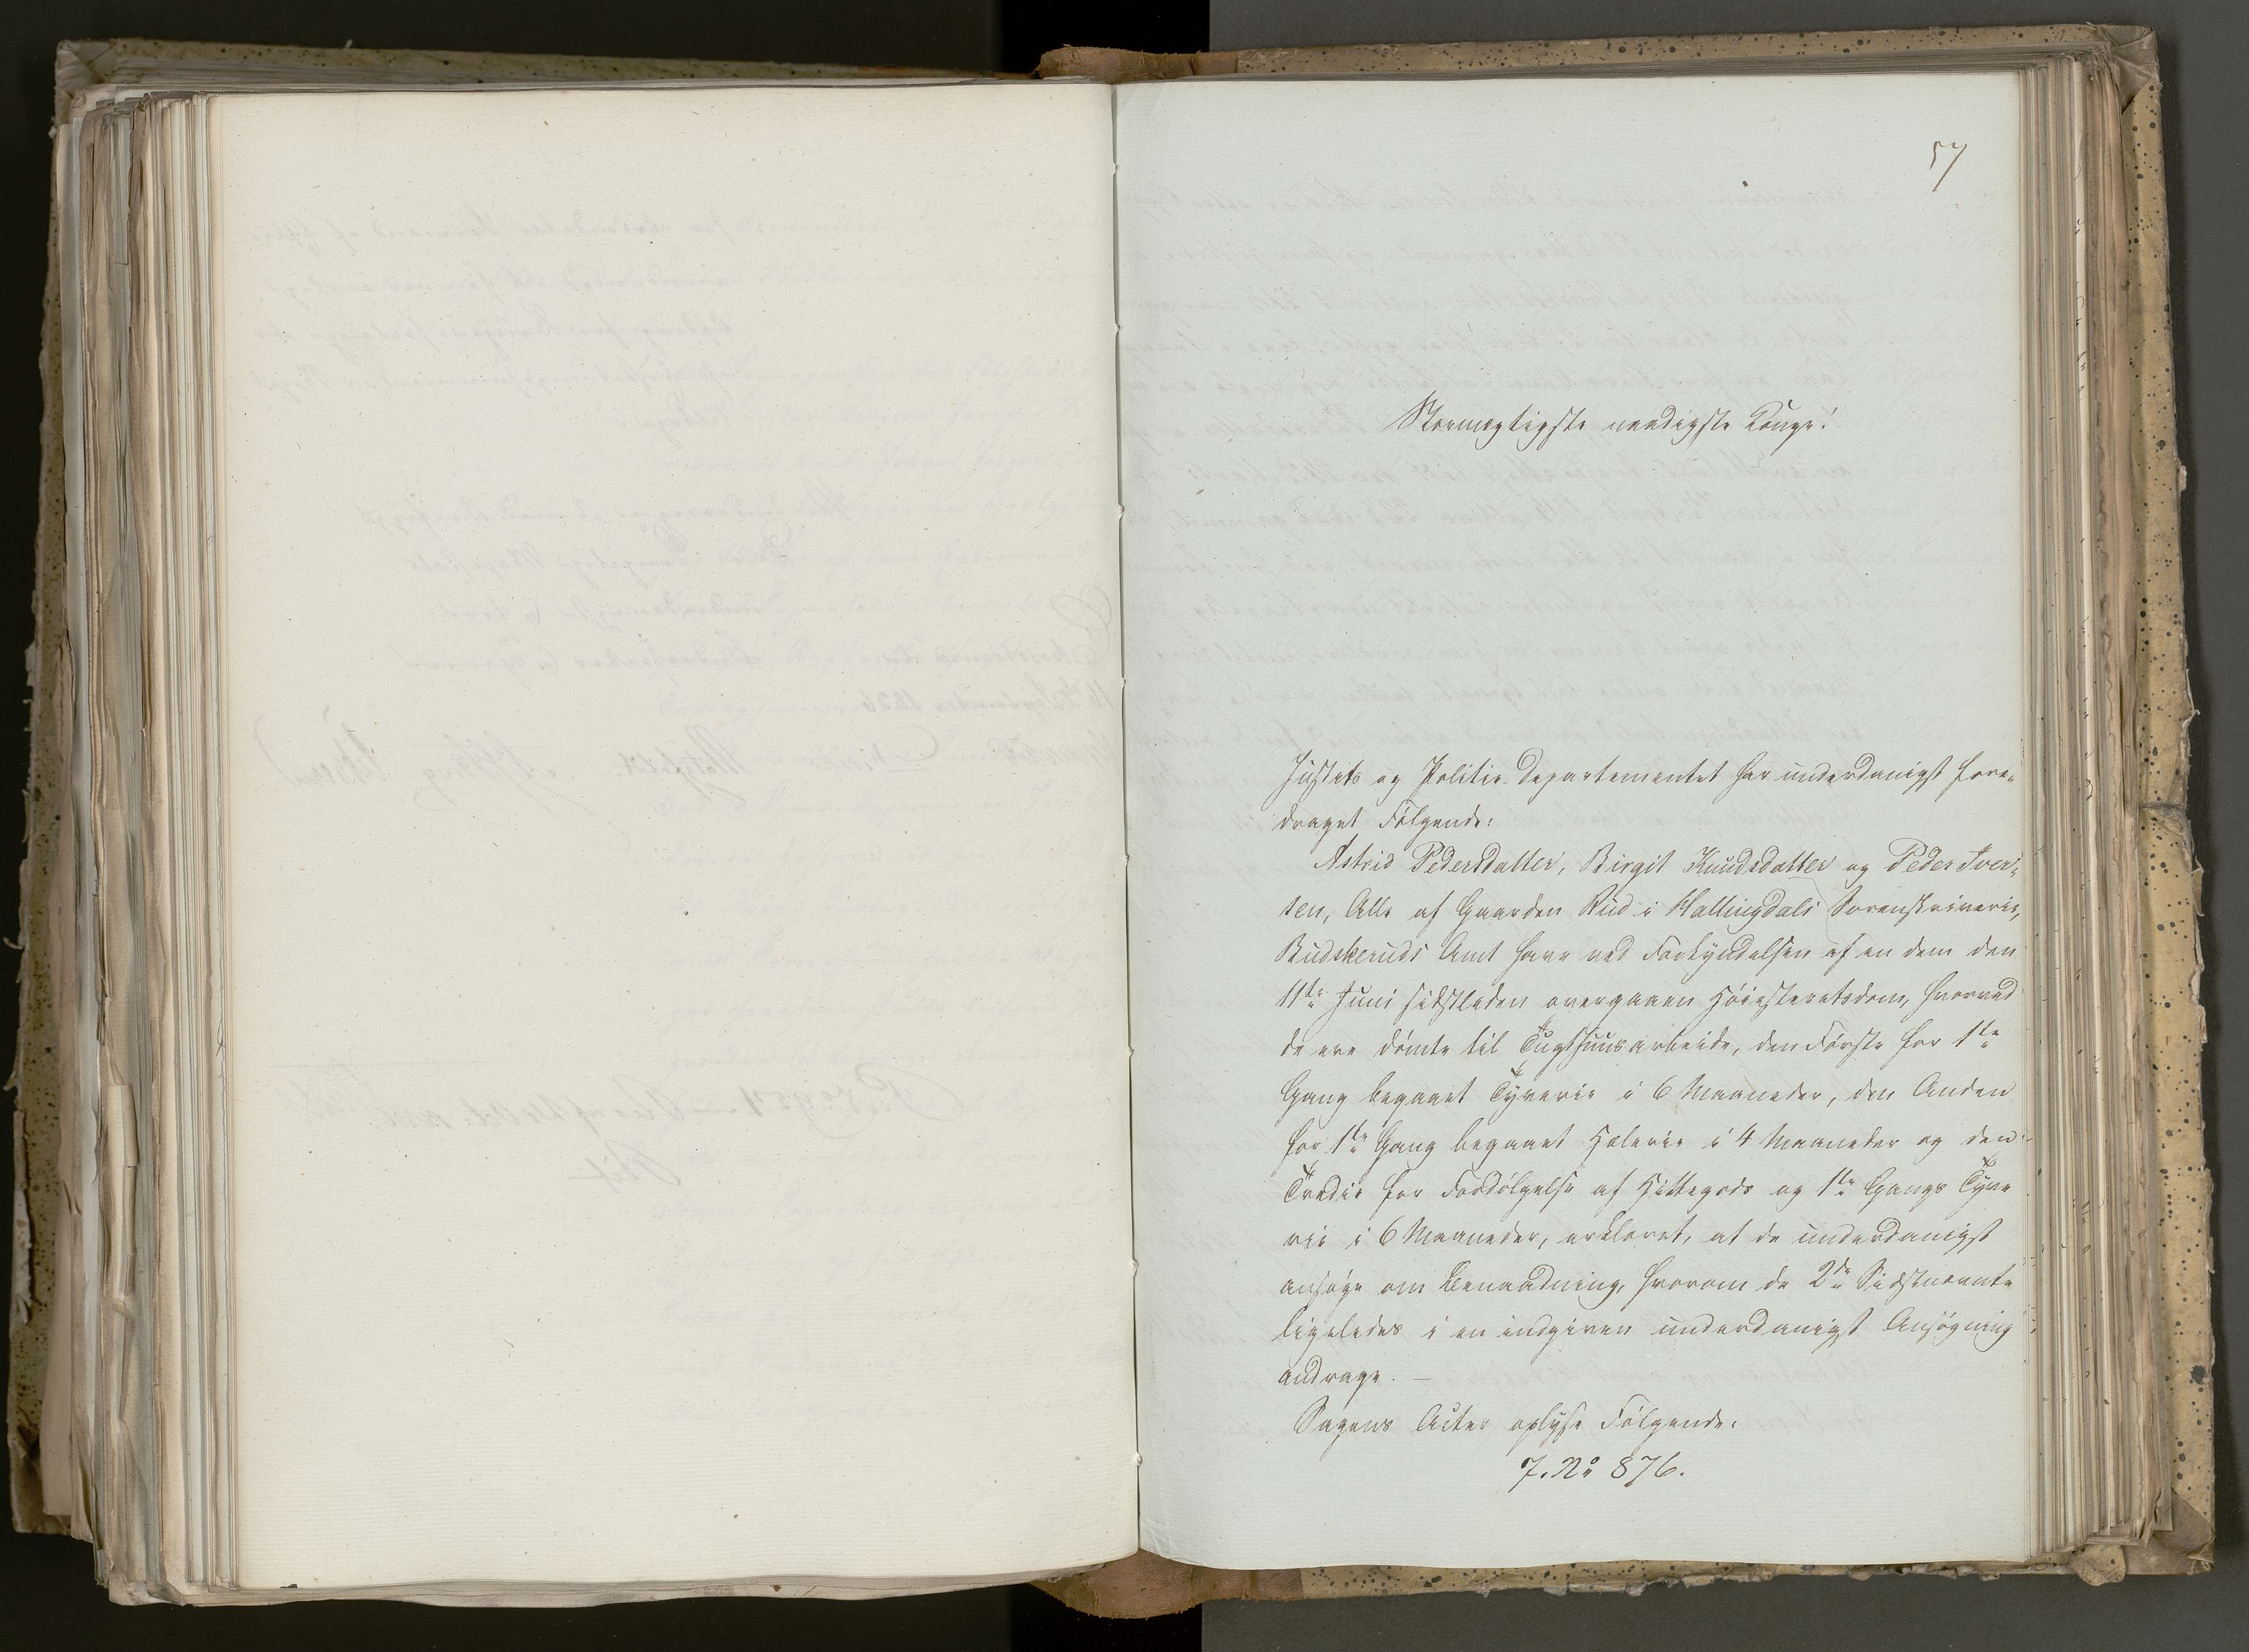 57
Stormægtigste naadigste Konge!
Justits og Politie-Departementet har underdanigst fore-
draget Følgende:
Astrid Pedersdatter, Birgit Knudsdatter og Peder Iver-
sen, Alle af Gaarden Rud i Hallingdals Sorenskriverie,
Budskeruds Amt have ved Forkyndelsen af en dem den
11te Juni sidstleden overgaaen Höiesteretsdom, hvorved
de ere dömte til Tugthuusarbeide, den Förste for 1te
Gang begaaet Tyverie i 6 Maaneder, den Anden
for 1te Gang begaaet Hæleri i 4 Maaneder og den
Tredie for Fordölgelse af Hittegods og 1te Gangs Tyve
rie i 6 Maaneder, erklæret, at de underdanigst
ansöge om Benaadning, hvorom de 2de Sidstnævnte
ligeledes i en indgiven underdanigst Ansögning
andrage. —
Sagens Acter oplyse Fölgende:
7. No 876.